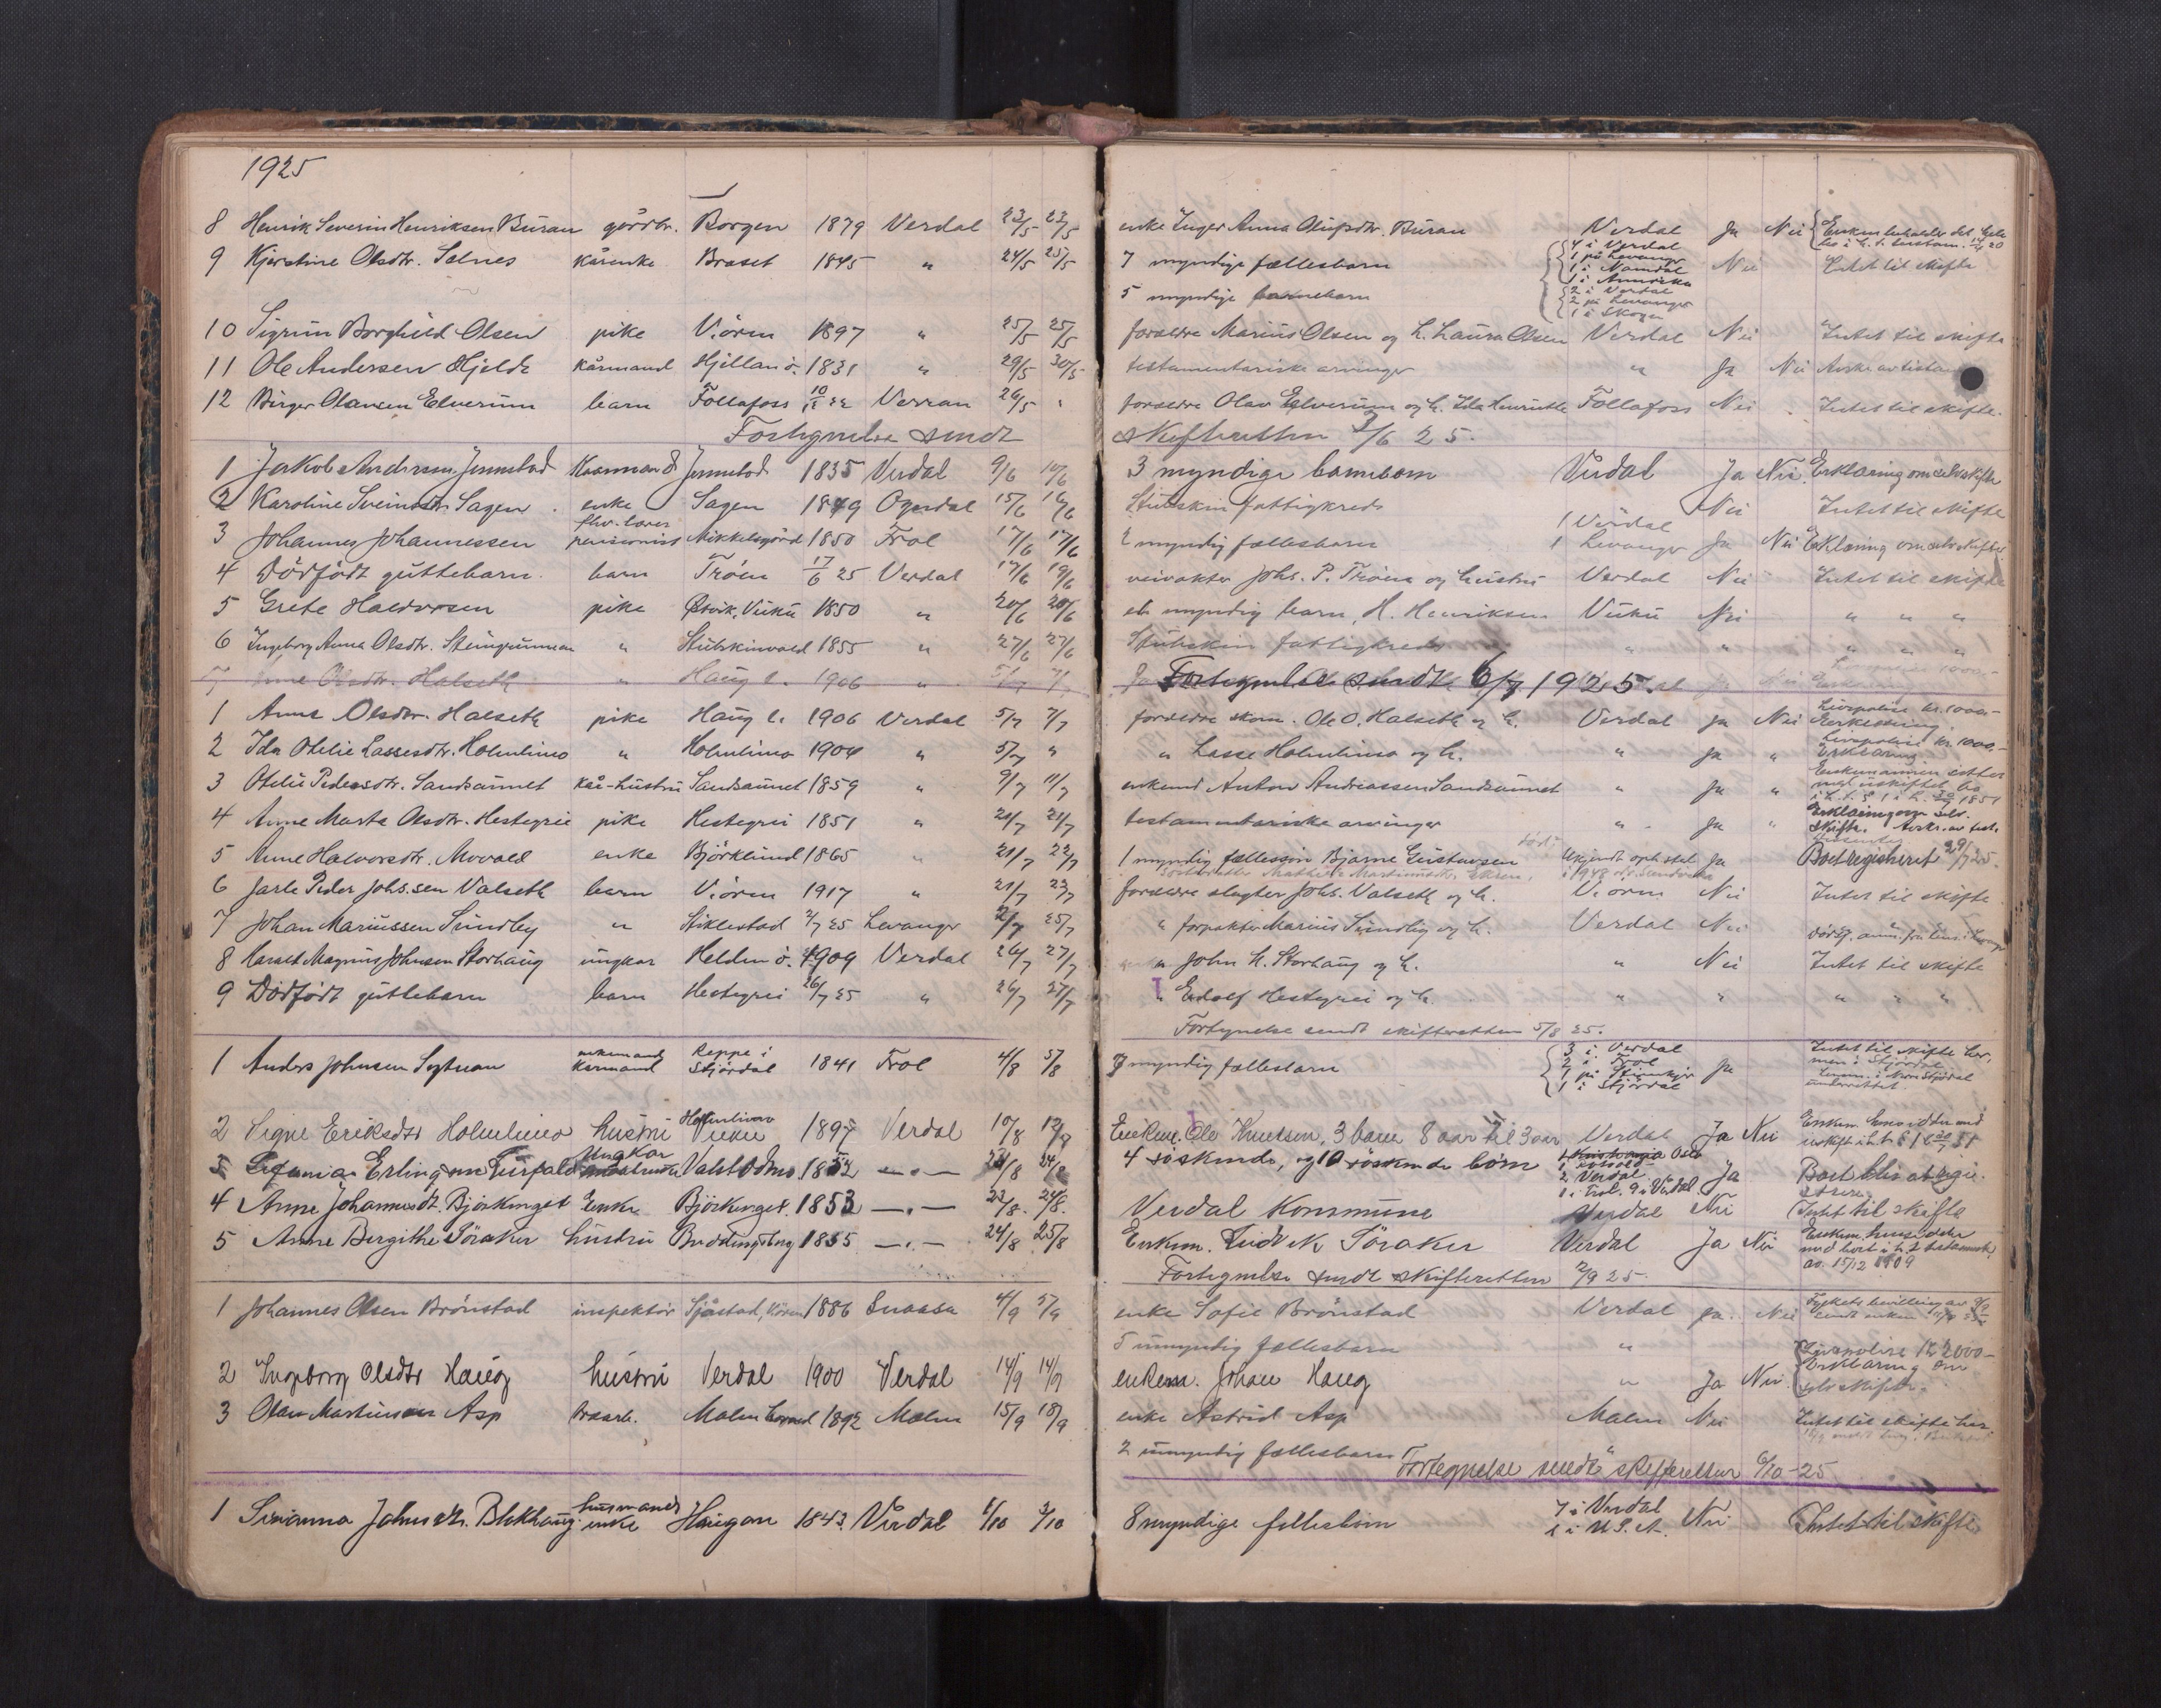 1925
8 Henrik Severin Henriksen Buran gårdbr. Borgen 1879 Verdal 23/5 23/5 enke Inger Anna Olufsdtr. Buran Verdal Ja Nei Enken beholder det hele
9 Kjerstine Olsdtr. Salnes kårenke Braset 1845 " 24/5 25/5 7 myndige fællesbarn 4 i Verdal Nei Intet til skifte
1 på Levanger
1 i Namdal
1 i Amerika
5 myndige barnebarn 2 i Verdal
2 på Levanger
1 i Skogn
10 Sigrun Borghild Olsen pike V.øren 1897 " 25/5 25/5 forældre Marius Olsen og h. Laura Olsen Verdal Nei Intet til skifte
11 Ole Andersen Hjelde kårmand Hjellan ö. 1831 " 29/5 30/5 testamentariske arvinger " Ja Nei
12 Birger Olausen Elverum barn Follafoss Verran 26/5 " forældre Olav Elverum og h. Ida Henriette Follafoss Nei Intet til skifte.
Fortegnelse sendt skifteretten 3/6 25.
1 Jakob Andersen Jermstad Kaarmand Jermstad 1835 Verdal 9/6 10/6 3 myndige barnebarn Verdal Ja Nei Erklæring om selvskifte
2 Karoline Sveinsdtr. Sagen enke Sagen 1849 Ogndal 15/6 16/6 Stubskin fattigkreds Nei Intet til skifte
3 Johannes Johannessen fhv. lærer pensionist Mikkelsgård 1850 Frol 17/6 17/6 2 myndig fællesbarn 1 Verdal 1 Levanger Ja Nei Erklæring om selvskifte
4 Dødfødt guttebarn. barn Trøen 17/6 25 Verdal 17/6 19/6 veivokter Johs. P. Trøen og hustru Verdal Nei Intet til skifte
5 Grete Haldorsen pike Østvik, Vuku 1850 " 20/6 20/6 et myndig barn, H. Henriksen Vuku Nei " " "
6 Ingeborg Anna Olsdtr. Steingrunnen " Stubskinvald 1855 " 27/6 27/6 Stubskin fattigkreds " " " " "
7 Anne Olsdtr. Halseth " Haug l. 1906 " 5/7 7/7 Fortegnelse sendt 6/7 1925.
1 Anna Olsdtr. Halseth pike Haug l. 1906 Verdal 5/7 7/7 forældre skom. Ole O. Halseth og h. Verdal Ja Nei Livspolise kr. 1000.- Erklæring
2 Ida Otelie Lassesdtr. Holmlimo " Holmlimo 1904 " 5/7 " " Lasse Holmlimo og h. " Ja " Livspolise kr 1000.- Erklæring
3 Otelie Pedersdtr. Sandsaunet kår-hustru Sandsaunet 1859 " 9/7 11/7 enkemd Anton Andreassen Sandsaunet " Ja " Enkemannen sitter med uskiftet bo
4 Anne Marta Olsdtr. Hestegrei pike Hestegrei 1851 " 21/7 21/7 testamentariske arvinger " Ja " Erklæring om selvskifte. Avskr. av test.
5 Anne Halvorsdtr. Movald enke Björklund 1865 " 21/7 22/7 1 myndig fællessøn Bjarne Gustavsen Ukjendt oph.sted Ja Boet registreret 29/7 25.
6 Jarle Peder Johs.sen Valseth barn V.øren 1917 " 21/7 23/7 forældre slagter Johs. Valseth og h. V.øren Nei Intet til skifte
7 Johan Mariussen Sundby " Stiklestad 2/7 25 Levanger 25/7 " forpakter Marius Sundby og h. Verdal Nei
8 Harald Magnus Johnsen Storhaug ungkar Helden ö. 1909 Verdal 26/7 27/7 " John H. Storhaug og h. " Nei Intet til skifte
9 Dödfödt guttebarn barn Hestegrei 26/7 25 " 26/7 27/7 " Edolf Hestegrei og h. " " " " "
Fortegnelse sendt skifteretten 5/8 25.
1 Anders Johnsen Lytuan enkemand kårmand Reppe i Stjørdal 1841 Frol 4/8 5/8 7 myndig fællesbarn 3 i Verdal Ja Intet til skifte her,
2 i Frol men i Stjørdal
1 på Steinkjer
1 i Stjørdal underrettet.
2 Signe Eriksdtr Holmlimo hustru Holmlimo Vuku 1897 Verdal 10/8 12/8 Enkem. Ole Knutsen, 3 barn 8 aar til 3 aar Verdal Ja Nei
3 Ungkar 1852 — " — 24/8 4 söskende, og 10 söskende börn Oslo 2 Verdal Ja Boet blir at regi-
4 Anne Johannesdt. Bjørkenget Enke Bjørkenget. 1853 — " — 23/8. 24/8. Verdal Kommune Verdal Nei Intet til skifte
5 Anne Bergithe Söraker hustru 1855 — " — 24/8 25/8 Enkem. Ludvik Söraker Verdal Ja Nei
Fortegnelse sendt skifteretten 2/9 25.
1 Johannes Olsen Brönstad inspektör Sjåstad, Vören 1886 Snaasa 4/9 5/9 enke Sofie Brönstad Verdal Ja. Nei
5 umyndig fællesbarn "
2 Ingeborg Olsdtr Haug hustru Verdal 1900 Verdal 14/9 14/9 enkem. Johan Haug " Ja Nei. Livspolise kr 2000.- Erklæring om selvskifte.
3 Olav Martinsen Asp Malm 1892 Malm 15/9 18/9 enke Astrid Asp Malm Nei Intet til skifte her
2 umyndig fællesbarn
Fortegnelse sendt skifteretten 6/10-25
1 Sirianna Johnsdtr. Blekhaug husmands enke Haugan 1843 Verdal 1/10 3/10 8 myndige fellesbörn 7 i Verdal 1 i U.S.A. Nei Intet til skifte